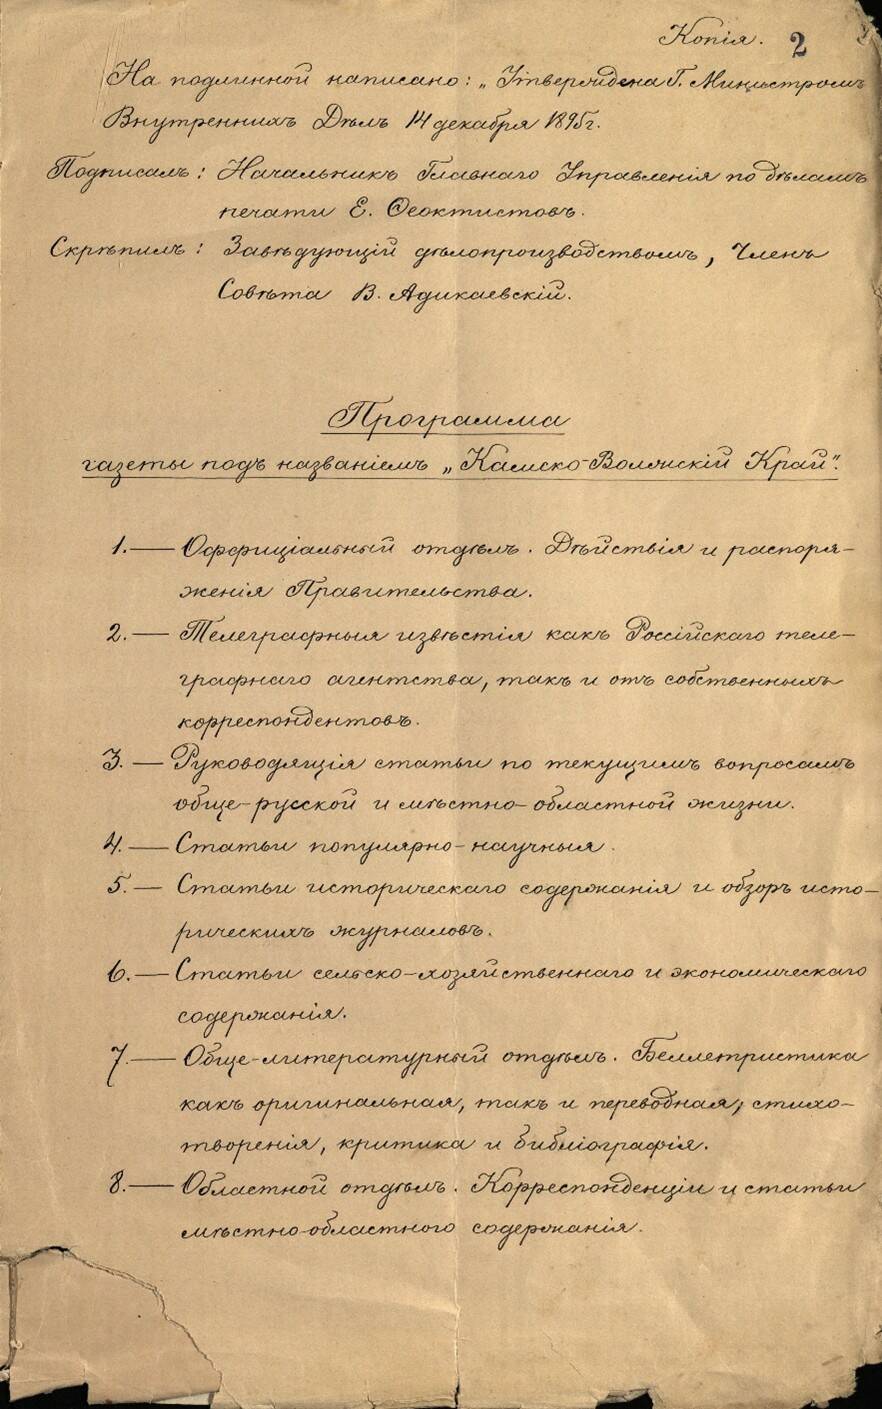 Копія. 2
На подлинной написано: „Утверждена Г. Министромъ
Внутреннихъ Дѣлъ 14 декабря 1895г.
Подписалъ: Начальникъ Главнаго Управленія по дѣламъ
печати Е. Ѳеоктистовъ.
Скрѣпилъ: Завѣдующій дѣлопроизводствомъ, Членъ
Совѣта В. Адикаевскій.
Программа
газеты подъ названіемъ „Камско-Волжскій Край".
1. — Оффиціальный отдѣлъ. Дѣйствія и распоря-
женія Правительства.
2. — Телеграфныя извѣстія какъ Россійскаго теле-
графнаго агентства, такъ и отъ собственныхъ
корреспондентовъ.
3. — Руководящія статьи по текущимъ вопросамъ
обще-русской и мѣстно-областной жизни.
4. — Статьи популярно-научныя.
5. — Статьи историческаго содержанія и обзоръ исто-
рическихъ журналовъ.
6. — Статьи сельско-хозяйственнаго и экономическаго
содержанія.
7. — Обще-литературный отдѣлъ. Беллетристика
какъ оригинальная, такъ и переводная, стихо-
творенія, критика и библіографія.
8. — Областной отдѣлъ. Корреспонденціи и статьи
мѣстно-областного содержанія.